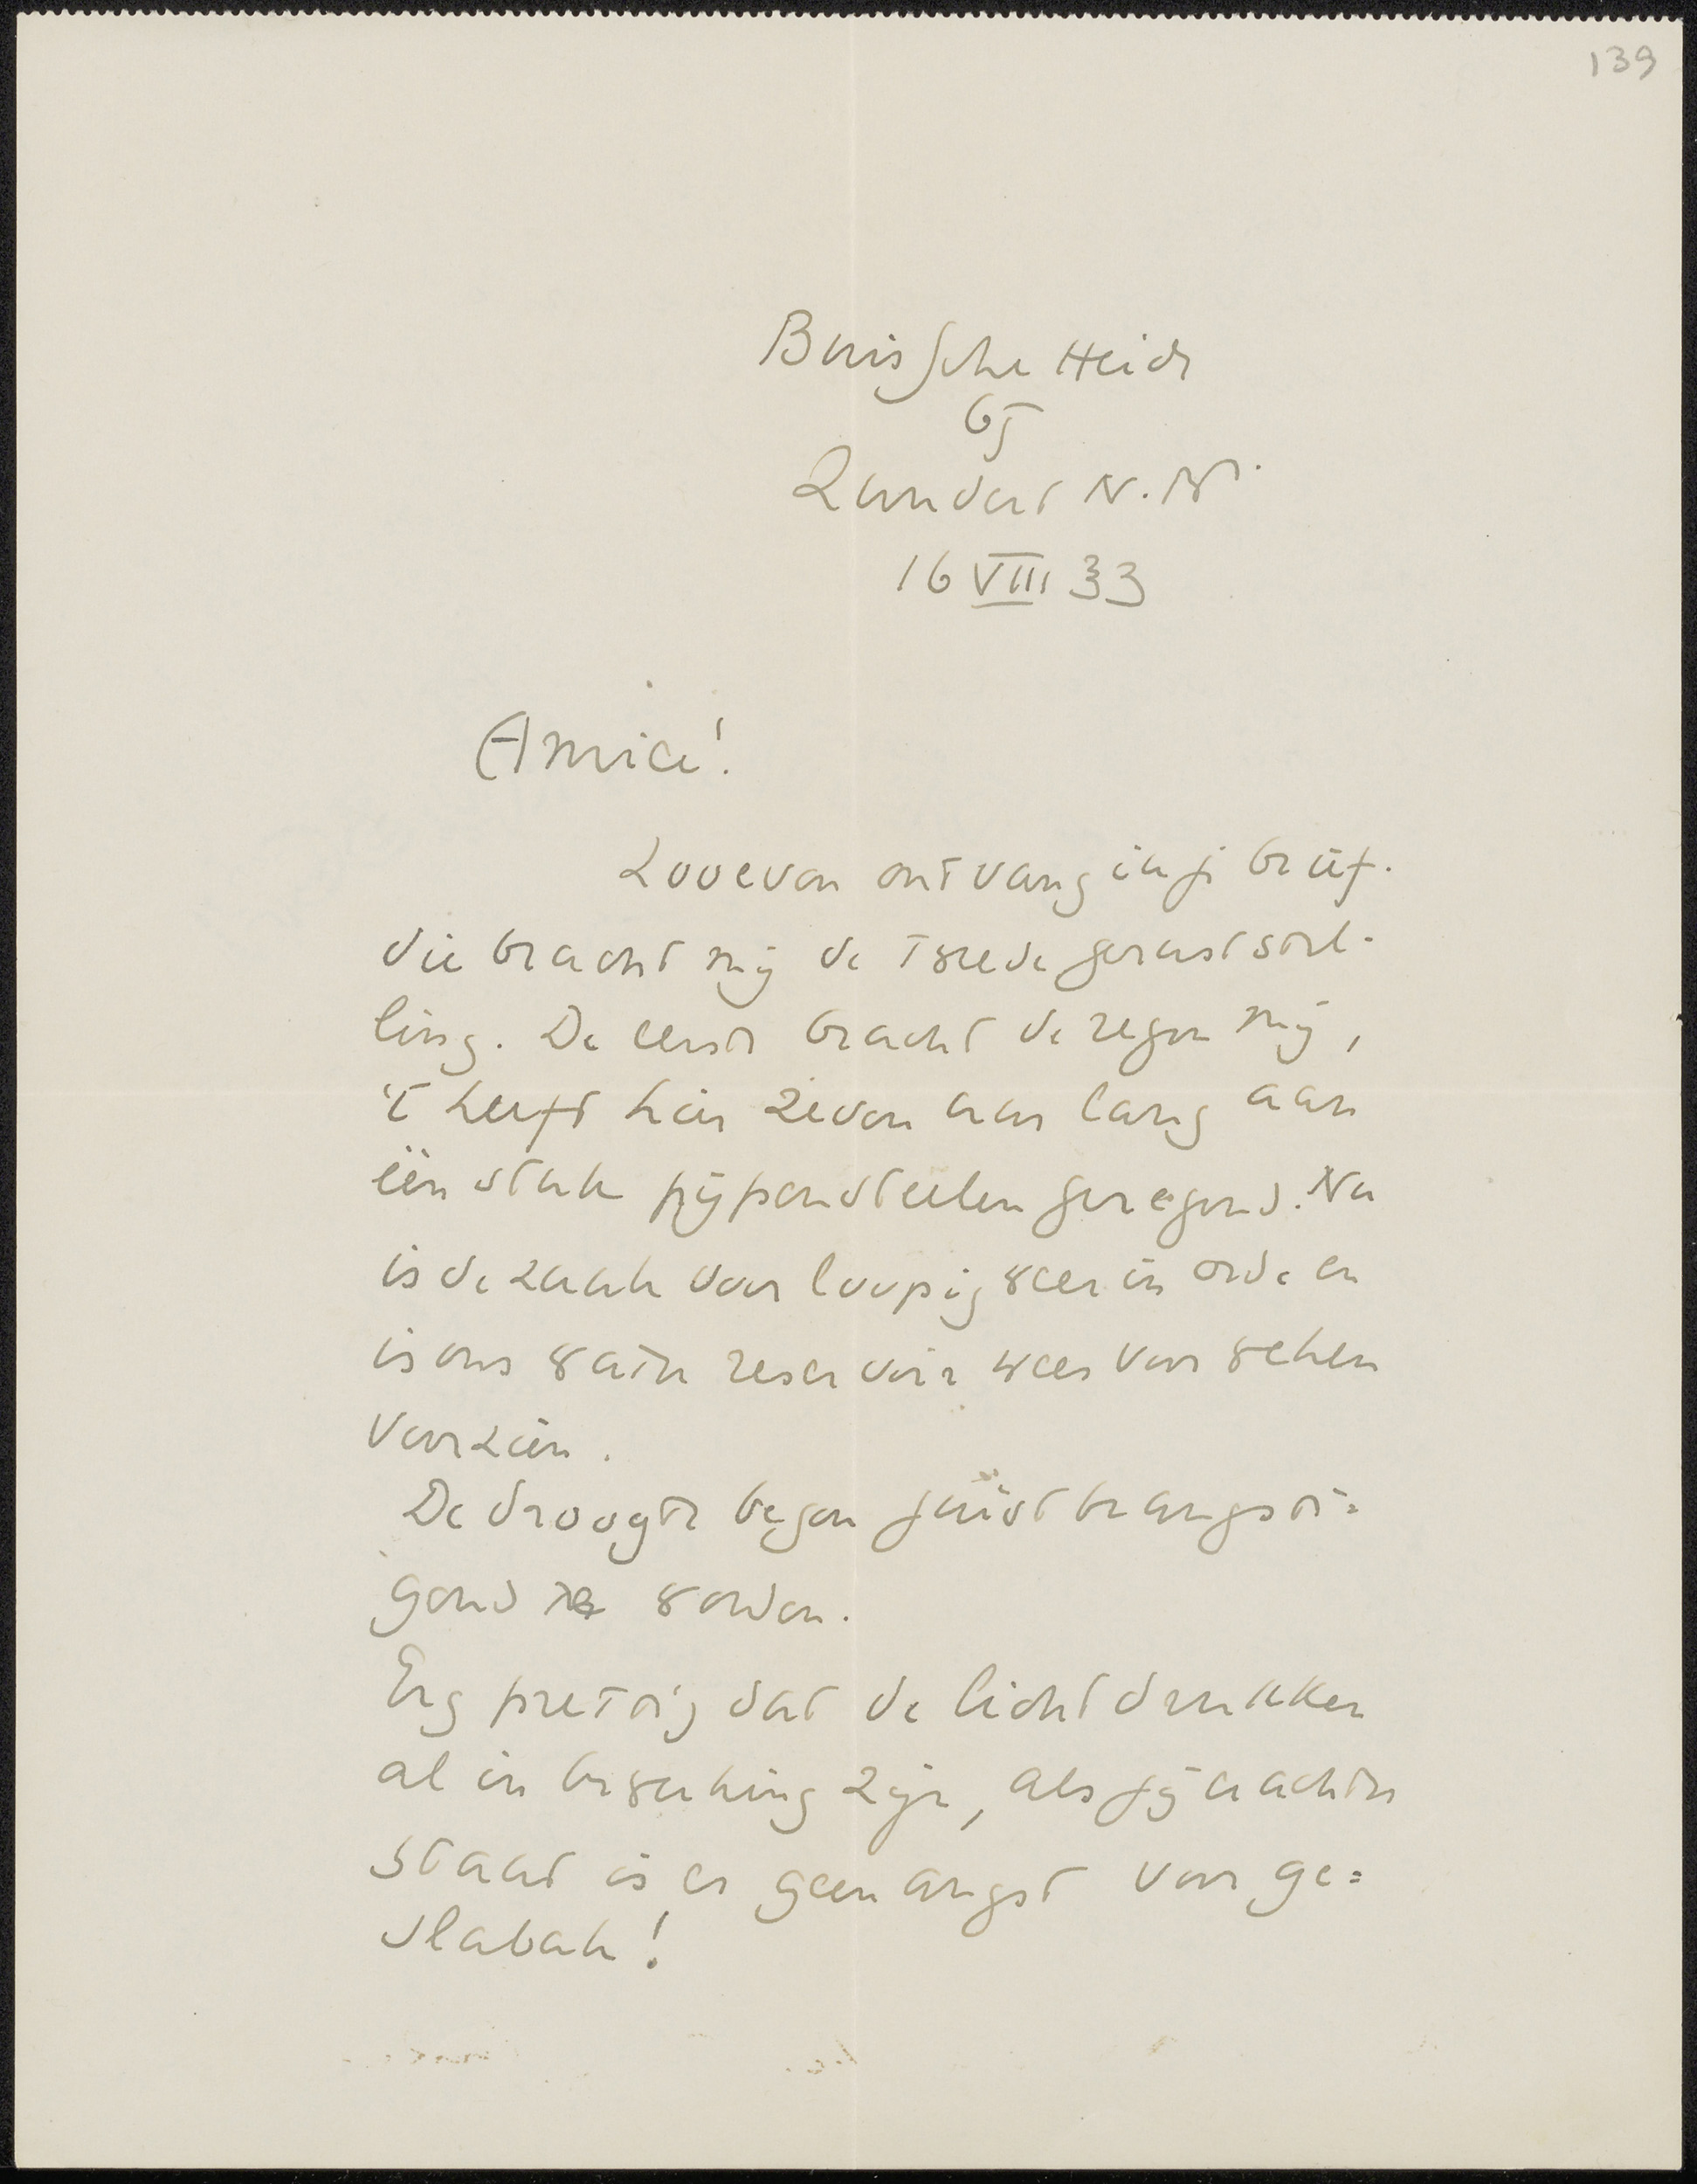 139
Buissche Heide
bij
Zundert N.B.
16 VIII 33
Amice!
Zooeven ontvang ik je brief.
die bracht mij de tweede geruststel-
ling. De eerste bracht de regen mij,
't heeft hier zeven uur lang aan
één stuk pijpenstelen geregend. Nu
is de zaak voorloopig weer in orde en
is ons water reservoir weer voor weken
voorzien.
De droogte begon juist beangsti=
gend te worden.
Erg prettig dat de lichtdrukken
al in bewerking zijn, als jij er achter
staat is er geen angst voor ge=
slabak!